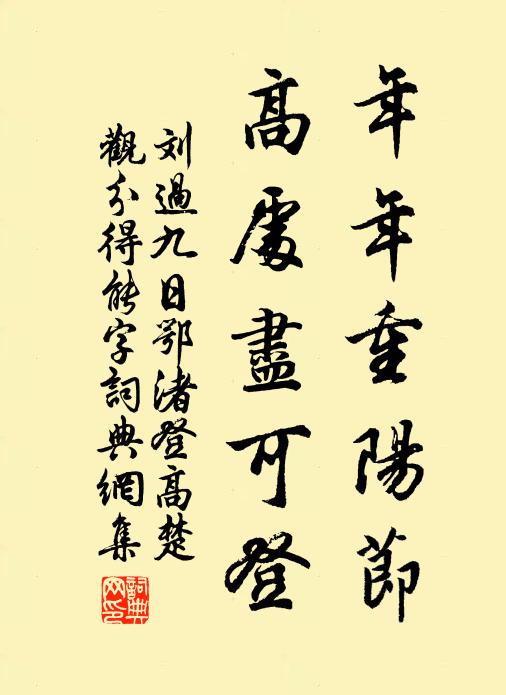 年年重陽節
高處盡可登
刘過九日鄂渚登高楚
觀分得能字詞典網集
詞典网印